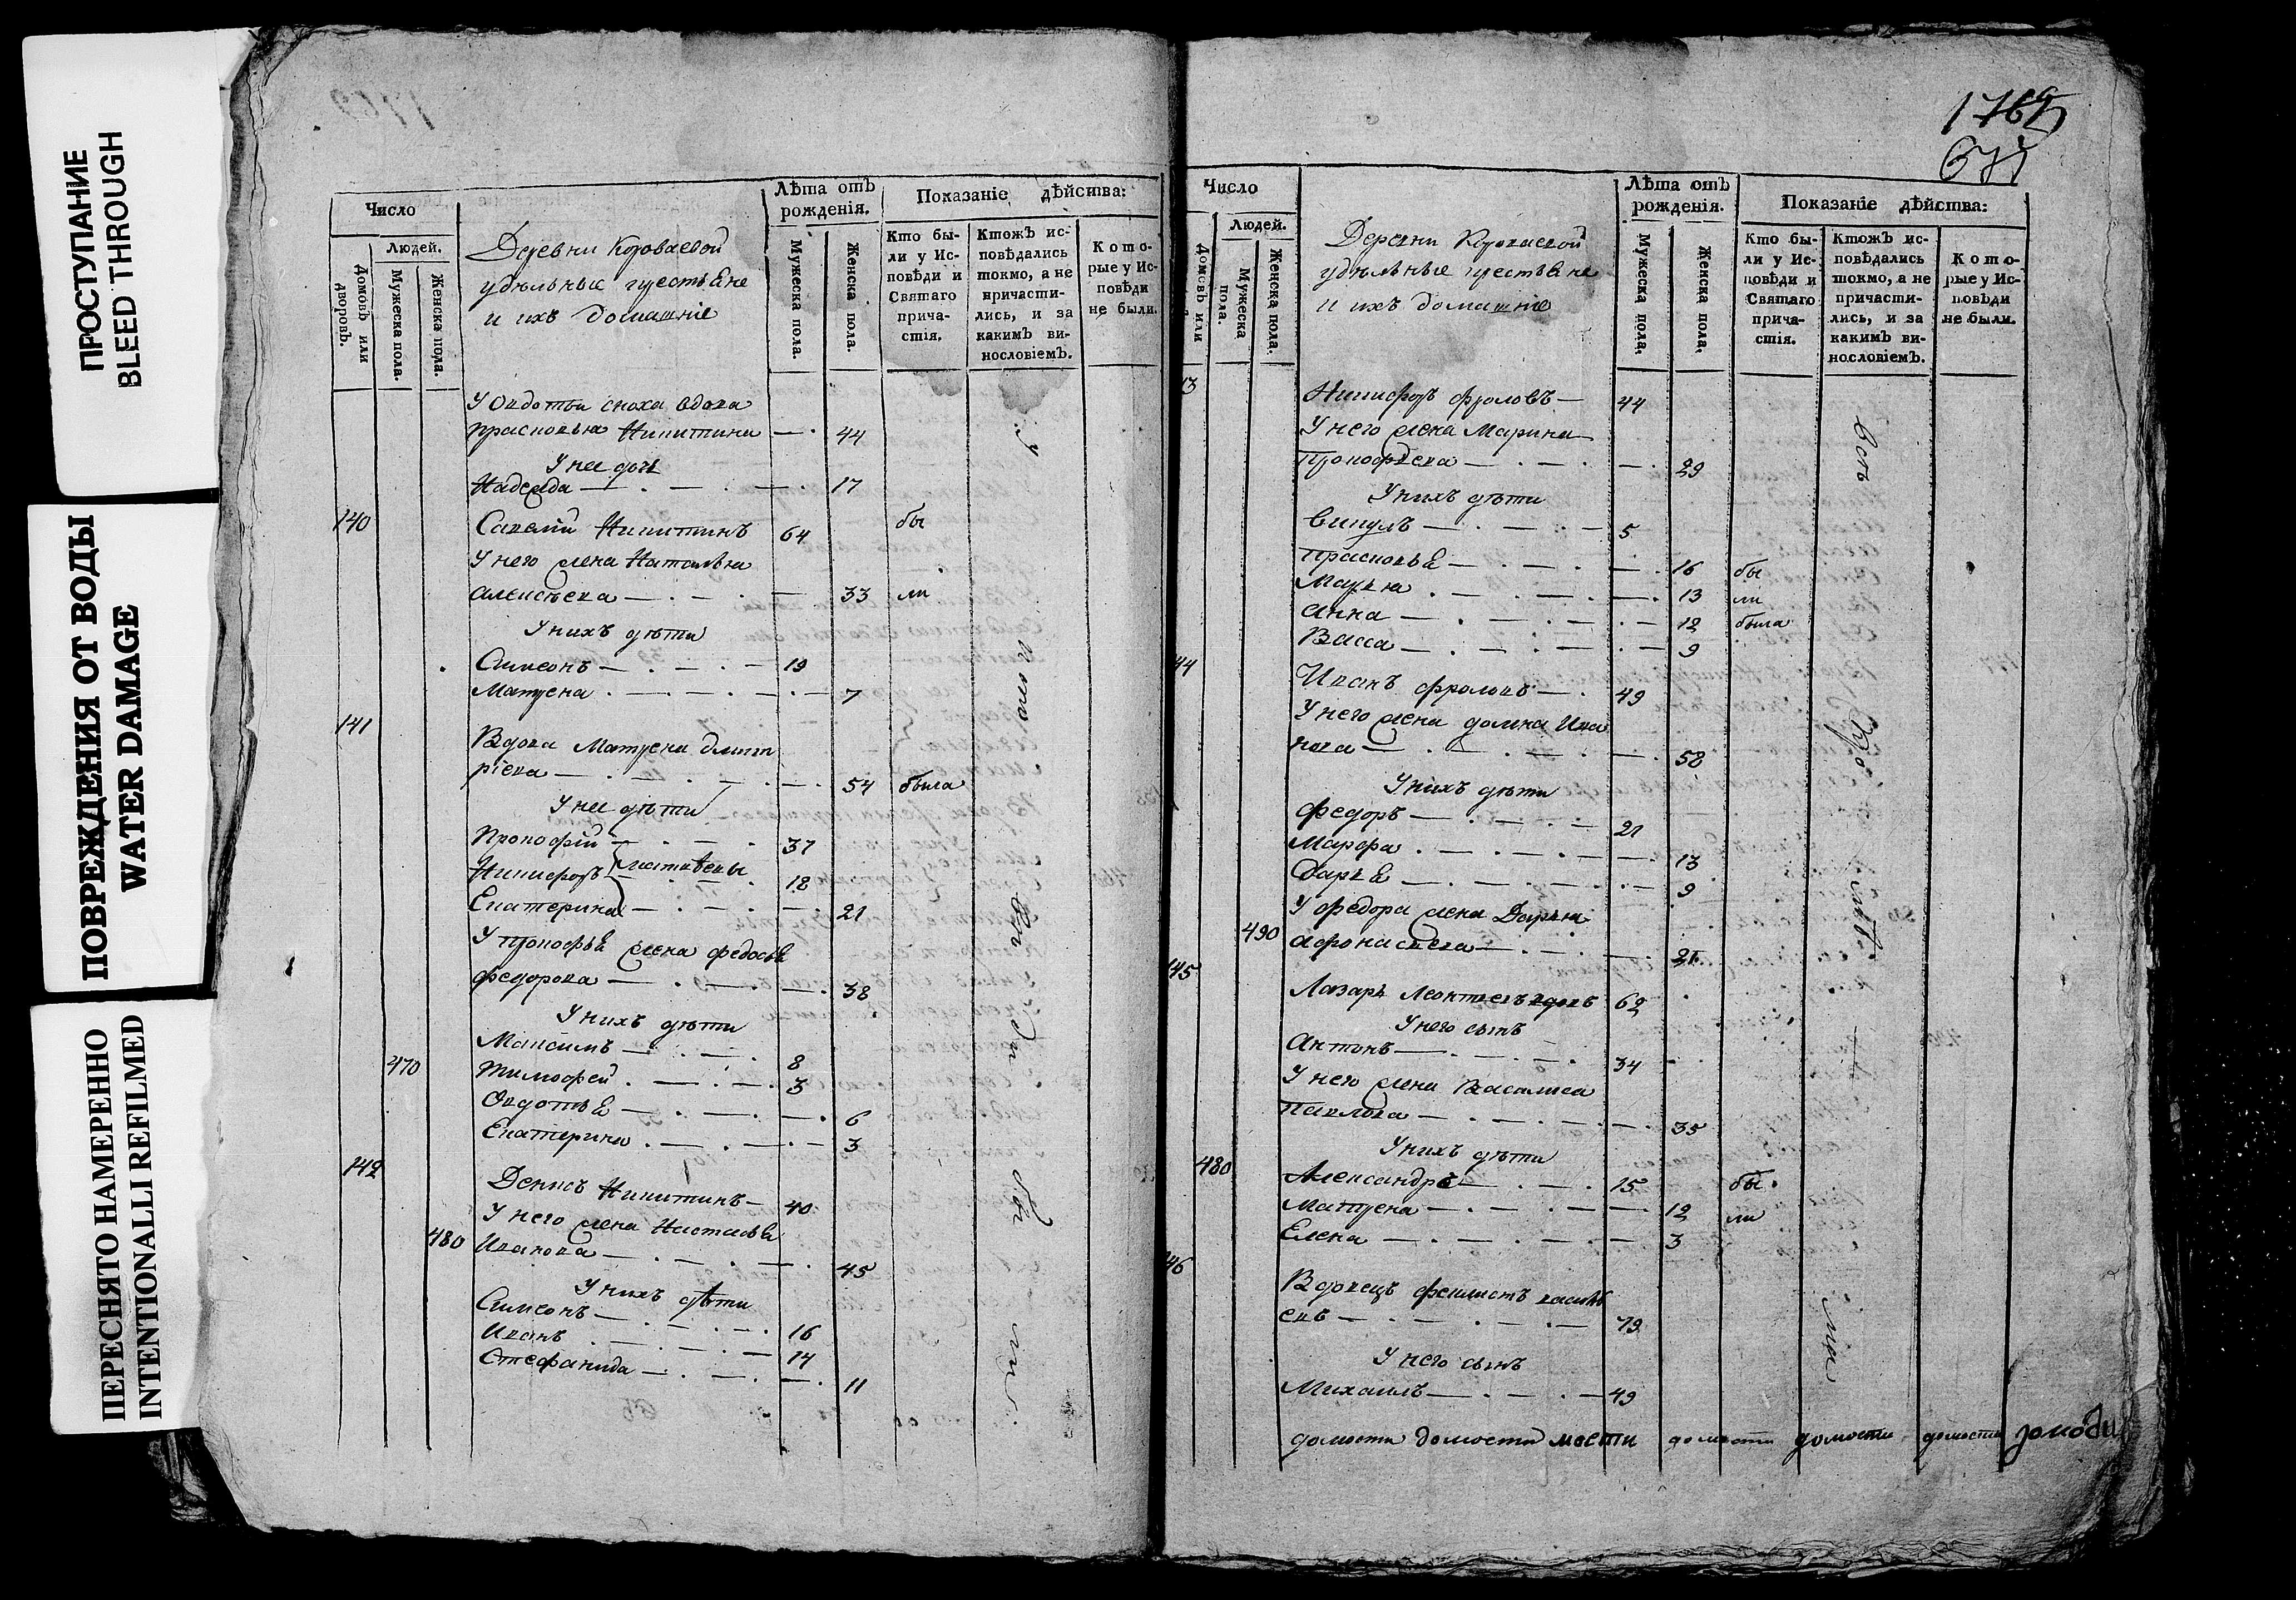 ПРОСТУПАНИЕ
BLEED THROUGH
ПОВРЕЖДЕНИЯ ОТ ВОДЫ
WATER DAMAGE
ПЕРЕСНЯТО НАМЕРЕННО
INTENTIONALLI REFILMED
Число
Людей.
Домовъ или дворовъ.
Мужеска пола.
Женска пола.
Деревни Короваевой
удѣльные крестьяне
и ихъ домашніе
Лѣта отъ рожденія.
Мужеска пола.
Женска пола.
Показаніе дѣйства:
Кто бы-
ли у Ис-
повѣди и
Святаго
прича-
стія.
Ктожъ ис-
повѣдались
токмо, а не
причасти-
лись, и за
какимъ ви-
нословіемъ.
Кото-
рые у Ис-
повѣди
не были.
У Овдотьи сноха вдова
Прасковья Никитина 44
У нее дочь
Надежда 17
140 Савелій Никитинъ 64 бы
У него жена Наталья
Алексѣева 33 ли
У нихъ дѣти
Симеонъ 19
Матрена 7
141 Вдова Матрена Дмит
ріева 54 была
У нее дѣти
Прокофій 37
Никифоръ Матвѣевы 18
Екатерина 21
У Прокофья жена Федосья
Федорова 38
У нихъ дѣти
Максимъ 8
470 Тимофей 3
Овдотья 6
Екатерина 3
142 Денисъ Никитинъ 40
У него жена Настасья
480 Иванова 45
У нихъ дѣти
Симеонъ 16
Иванъ 14
Стефанида 11
1765
Число
Людей.
Домовъ или
Мужеска пола.
Женска пола.
Деревни Короваевой
удѣльные крестьяне
и ихъ домашніе
Лѣта отъ рожденія.
Мужеска пола.
Женска пола.
Показаніе дѣйства:
Кто бы-
ли у Ис-
повѣди и
Святаго
прича-
стія.
Ктожъ ис-
повѣдались
токмо, а не
причасти-
лись, и за
какимъ ви-
нословіемъ.
Кото-
рые у Ис-
повѣди
не были.
43 Никифоръ Фроловъ 44
У него жена Марина
Прокофьева 29
У нихъ дѣти
Викулъ 5
Прасковья 16 бы
Марья 13 ли
Анна 12 была
Васса 9
44 Иванъ Фроловъ 49
У него жена Домна Ива
нова 58
У нихъ дѣти
Федоръ 21
Марфа 13
Дарья 9
У Федора жена Дарья
490 Афонасьева 21
145 Лазарь Леонтьевъ вдовъ 62
У него сынъ
Антонъ 34
У него жена Василиса
Павлова 35
У нихъ дѣти
480 Александръ 15 бы
Матрена 12 ли
Елена 3
46 Вдовецъ Феклистъ Василь
евъ 79
У него сынъ
Михаилъ 49
домости домости мости домости домости домости